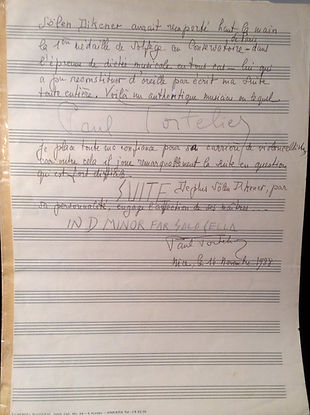 Şölen Dikener aurait remporté haut la main
la 1ère médaille de solfège au Conservatoire - dans
l'épreuve de dictée musicale en tout cas - lui qui
a pu reconstituer d'oreille par écrit ma Suite
toute entière. Voilà un authentique musicien en lequel
Paul Tortelier
je place toute ma confiance pour sa carrière de violoncelliste,
car outre cela il joue remarquablement la suite en question
qui est fort difficile.
SUITE De plus Şölen Dikener, par
sa personnalité, engage l'affection de ses maîtres...
IN D MINOR FAR SALO CELLA
Paul Tortelier
Nice, le Novembre